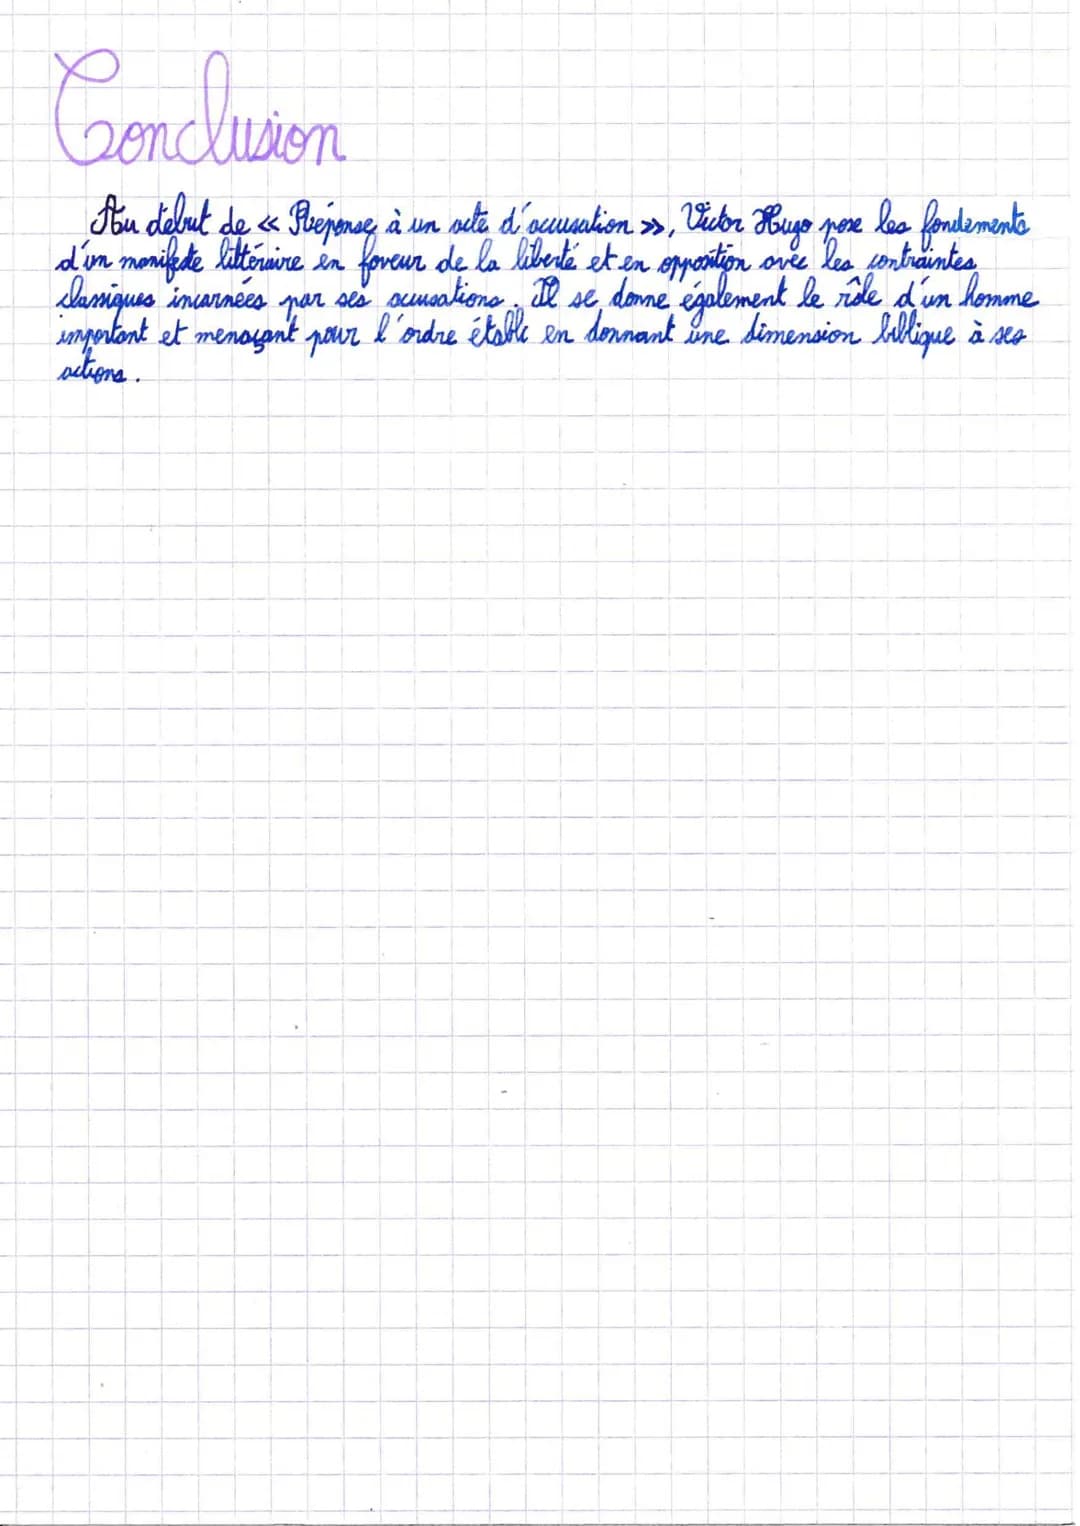 Conclusion
Au début de << Réponse à un acte d'accusation >>, Victor Hugo pose les fondements
d'un manifeste littéraire en faveur de la liberté et en opposition avec les contraintes
classiques incarnées par ses accusations. Il se donne également le rôle d'un homme
important et menaçant pour l'ordre établi en donnant une dimension biblique à ses
actions.